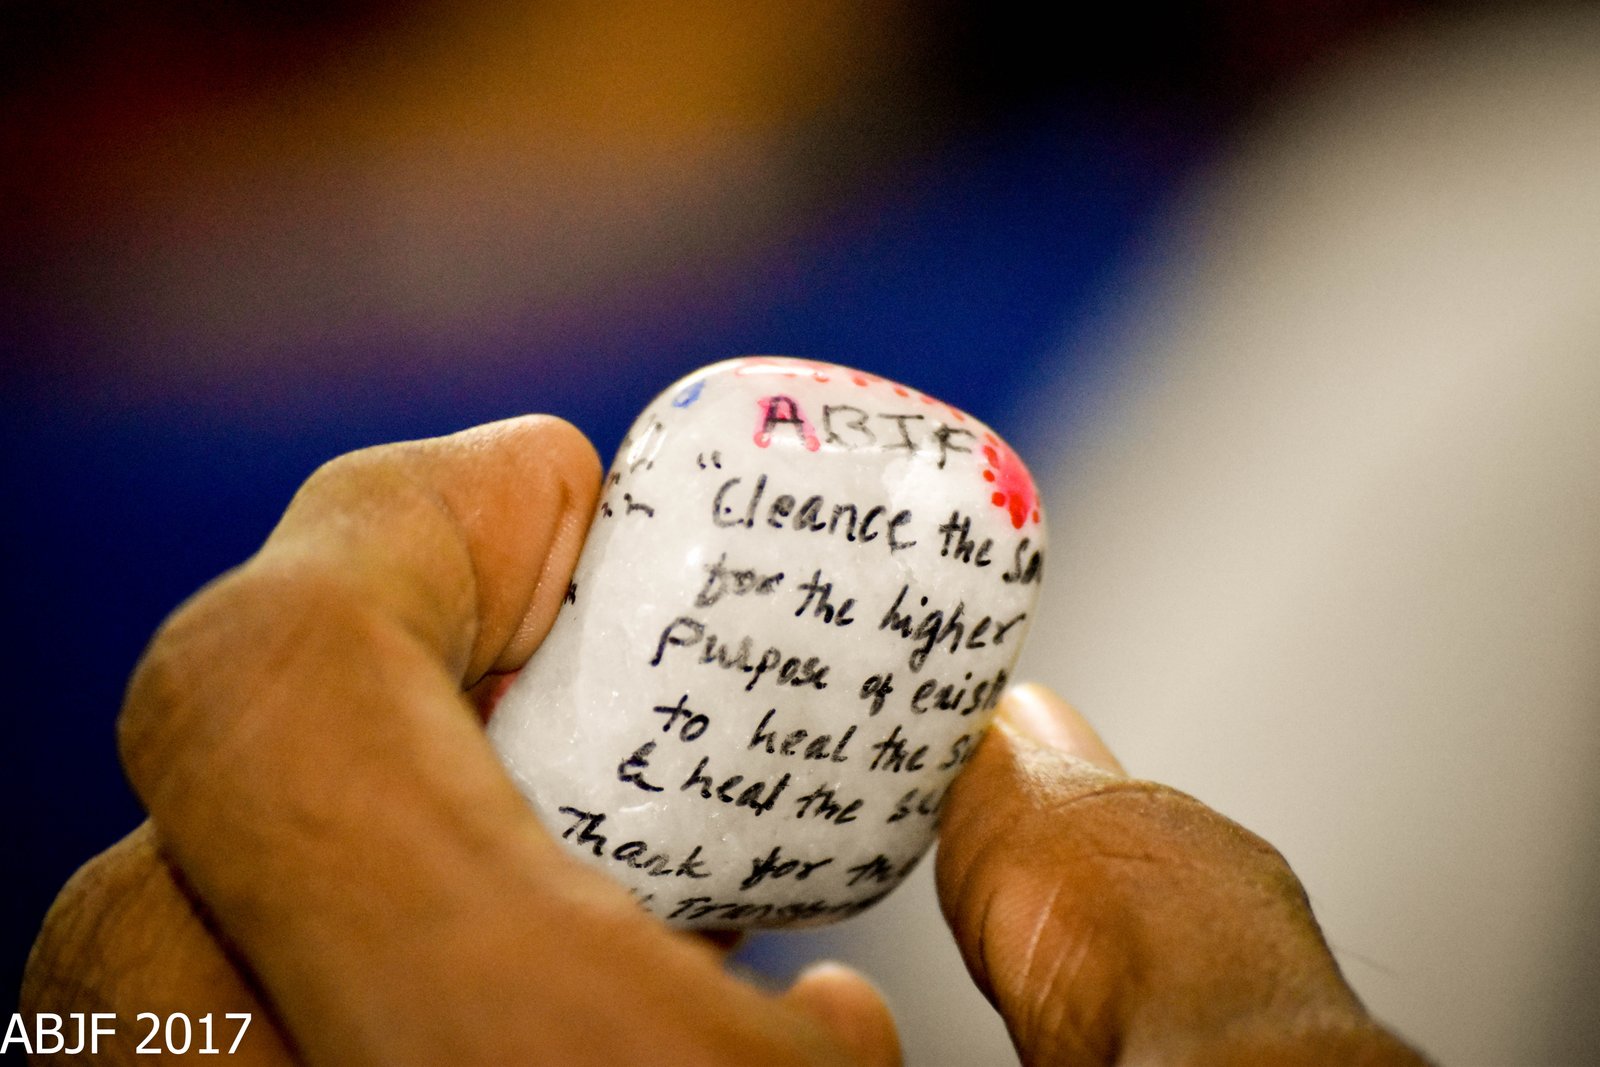 ABJF
"Cleance the
for the higher
Purpose of
to heal the
& heal the
Thank for
ABJF 2017